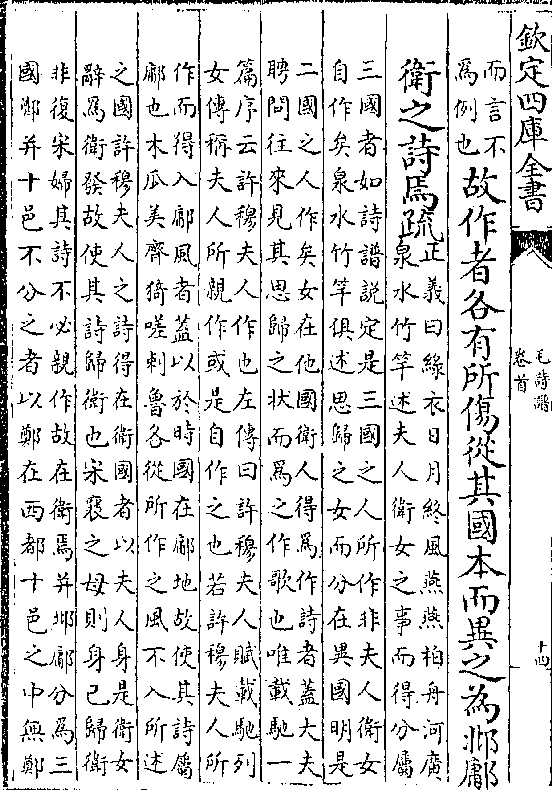 欽定四庫全書
毛詩譜
卷首
十四
而言不
為例也
故作者各有所傷從其國本而異之為邶鄘
衛之詩焉疏
正義曰綠衣日月終風燕燕柏舟河廣
泉水竹竿述夫人衛女之事而得分屬
三國者如詩譜說定是三國之人所作非夫人衛女
自作矣泉水竹竿俱述思歸之女而分在異國明是
二國之人作矣女在他國衛人得為作詩者蓋大夫
聘問往來見其思歸之狀而為之作歌也唯載馳一
篇序云許穆夫人作也左傳曰許穆夫人賦載馳列
女傳稱夫人所親作或是自作之也若許穆夫人所
作而得入鄘風者蓋以於時國在鄘地故使其詩屬
鄘也木瓜美齊猗嗟刺魯各從所作之風不入所述
之國許穆夫人之詩得在衛國者以夫人身是衛女
辭為衛發故使其詩歸衛也宋襄之母則身已歸衛
非復宋婦其詩不必親作故在衛焉并邶鄘分為三
國鄭并十邑不分之者以鄭在西都十邑之中無鄭